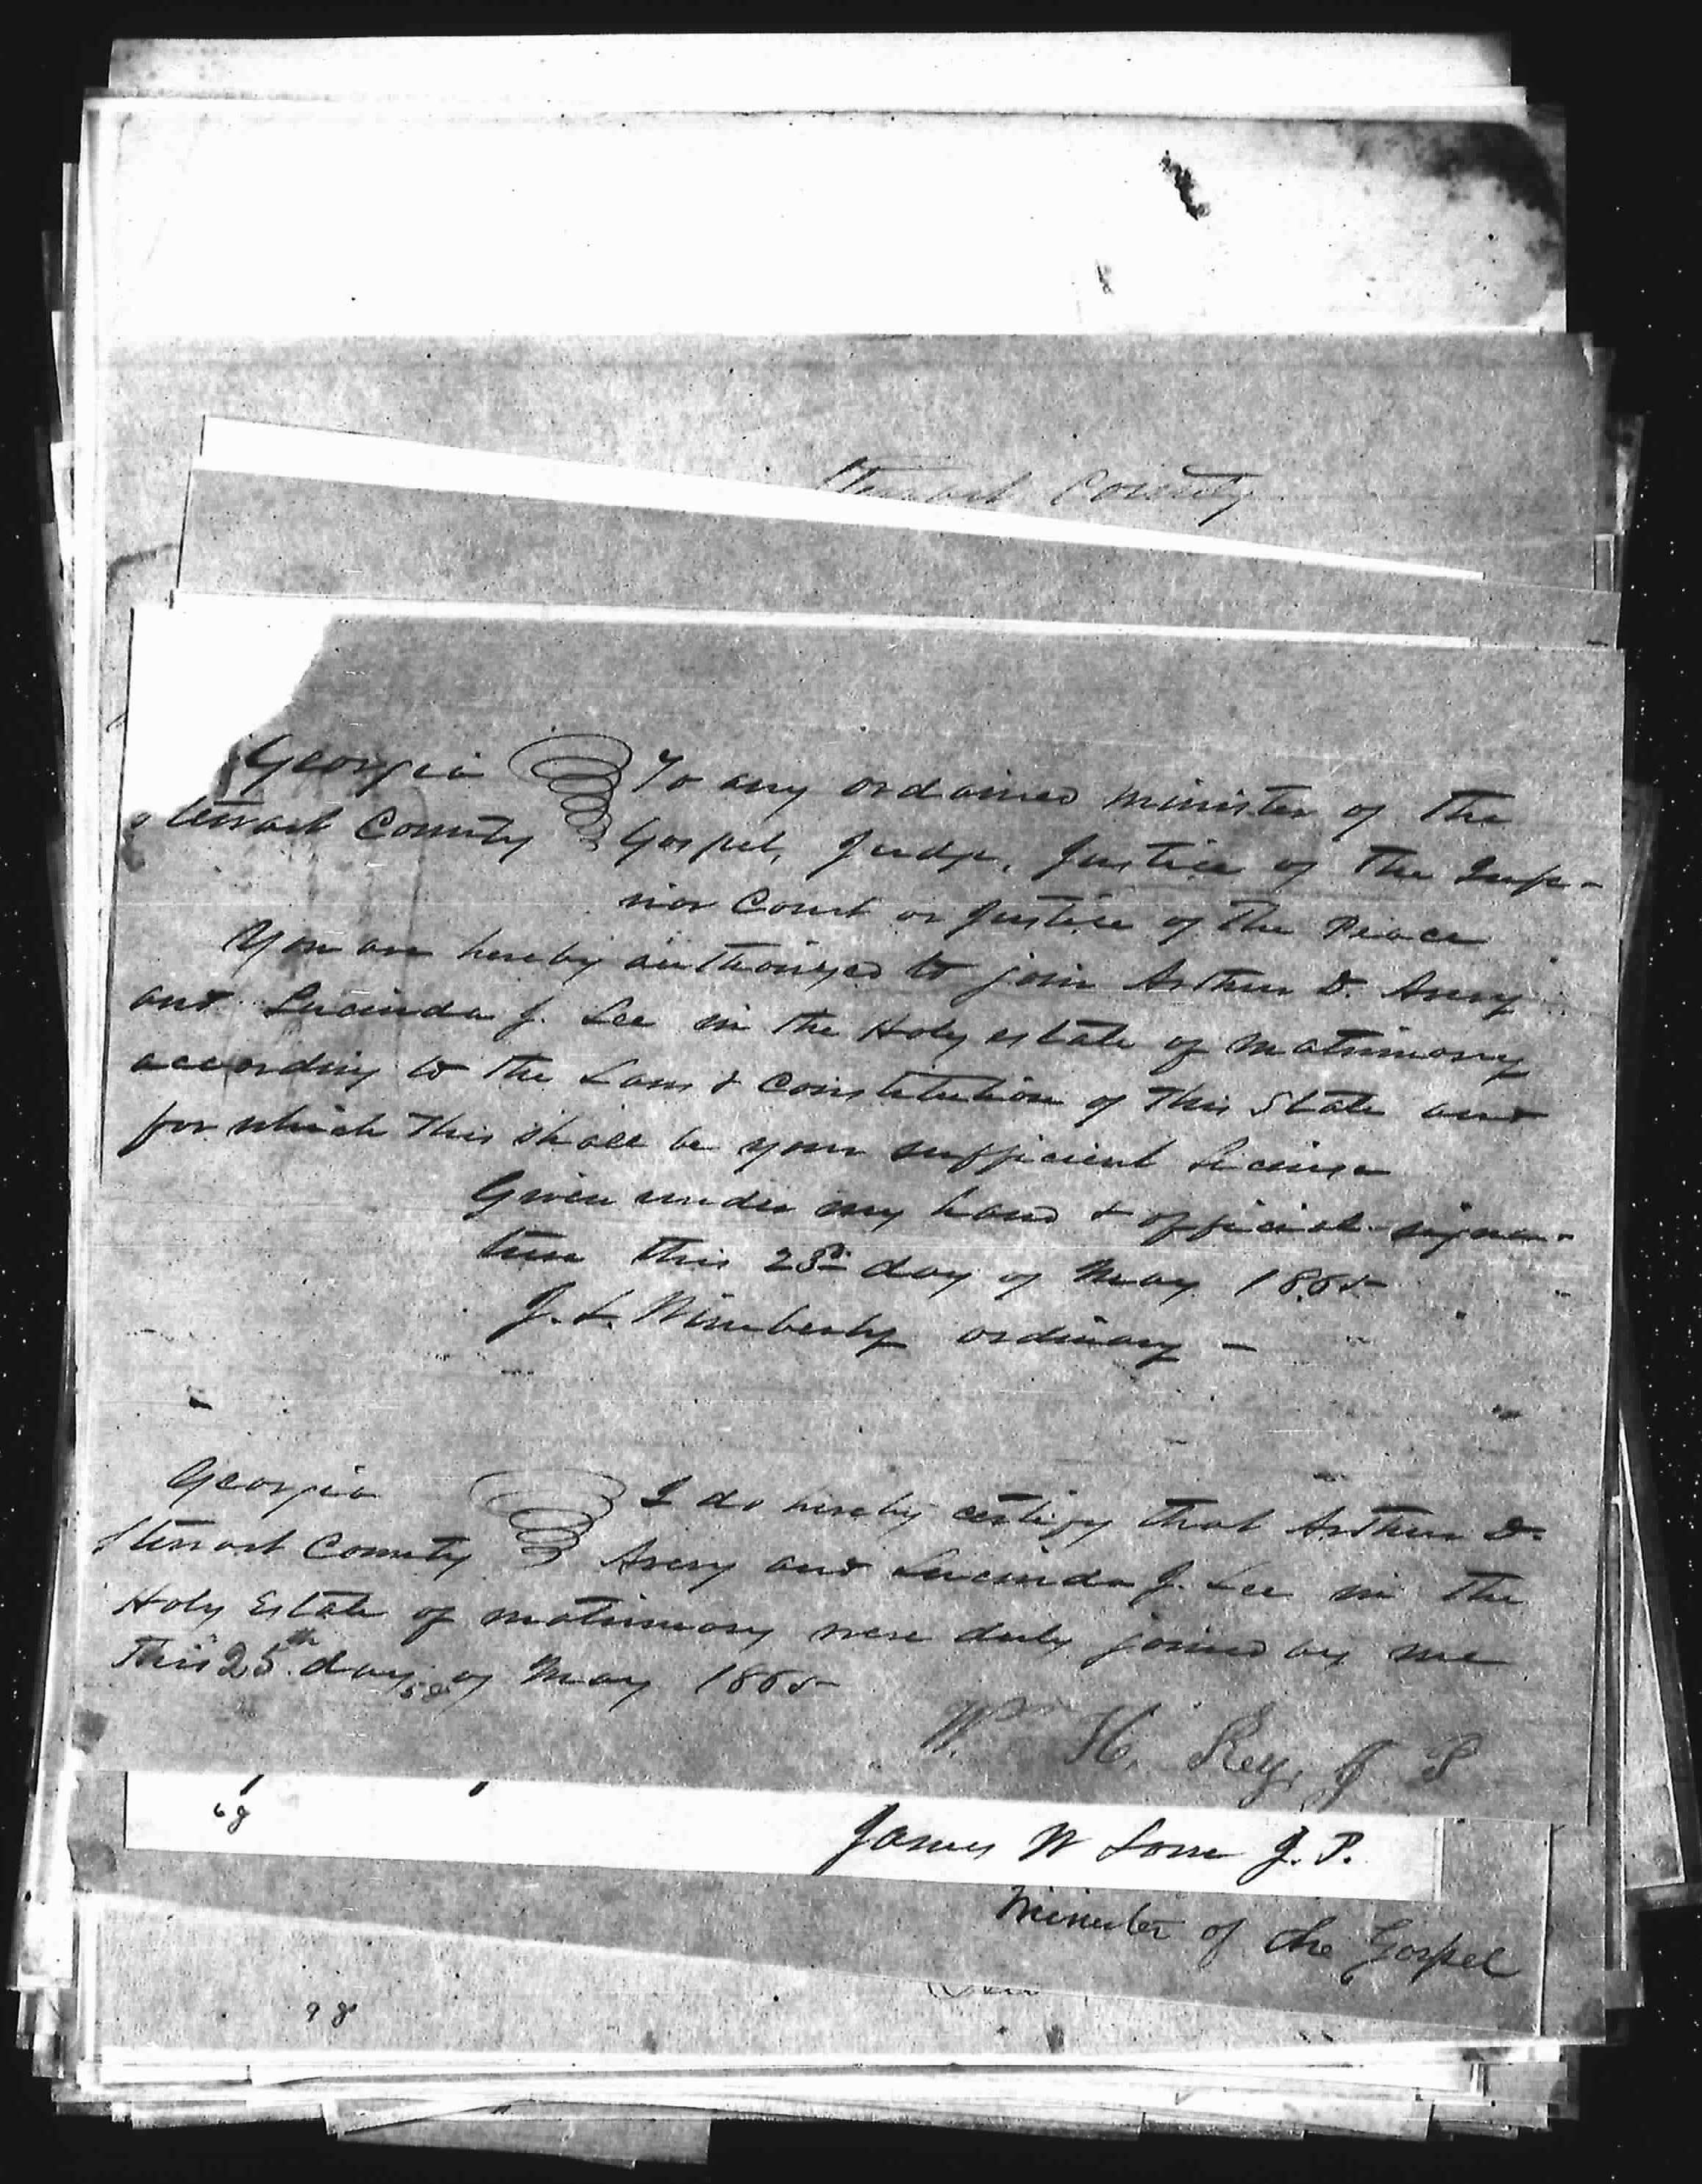 Stewart County
Georgia To any ordained minister of the
Stewart County Gospel, Judge, Justice of the Infe-
rior Court or Justice of the Peace
You are hereby authorized to join Arthur D. Avery
and Lucinda J. Lee in the Holy estate of matrimony
according to the Laws & Constitution of this State and
for which this shall be your sufficient License
Given under my hand & official signa-
ture this 23rd day of May 1865
J. L. Wimberly ordinary -
Georgia I do hereby certify that Arthur D.
Stewart County Avery and Lucinda J. Lee in the
Holy Estate of matrimony were duly joined by me
this 25th day of May 1865
58
Wm H. Key, J P
68
James W Lowe J. P.
Minister of the Gospel
98